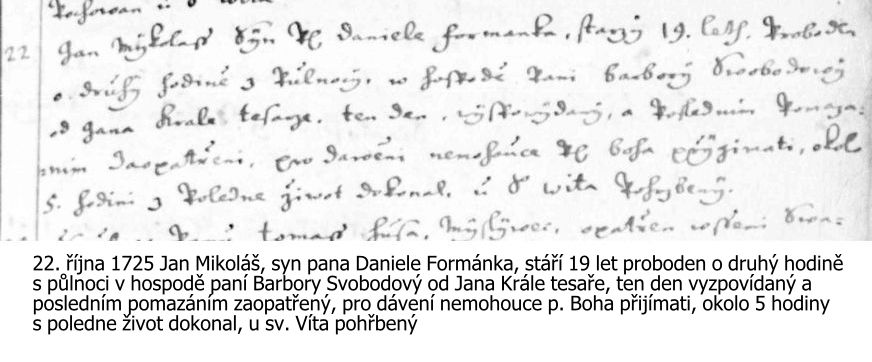 Pochovan u S Wita
22 Jan Mÿkolass Sÿn Pĕ. Daniele Formanka, starÿ 19. leth. Proboden
o druhÿ hodině z Půlnoczÿ, w hospodě Pani barborÿ Swobodowÿ
od Jana Krale tesarze, ten den, wÿspowÿdanÿ, a Poslednim Pomaza-
nim Zaopatřeni, pro daweni nemohouce P. boha přÿgimati, okolo
5. hodini z Poledne žiwot dokonal, u S wita Pohrzbenÿ.
Tomass Husa, Mÿslÿwec, opatřen wssemi Swa-
22. října 1725 Jan Mikoláš, syn pana Daniele Formánka, stáří 19 let proboden o druhý hodině
s půlnoci v hospodě paní Barbory Svobodový od Jana Krále tesaře, ten den vyzpovídaný a
posledním pomazáním zaopatřený, pro dávení nemohouce p. Boha přijímati, okolo 5 hodiny
s poledne život dokonal, u sv. Víta pohřbený